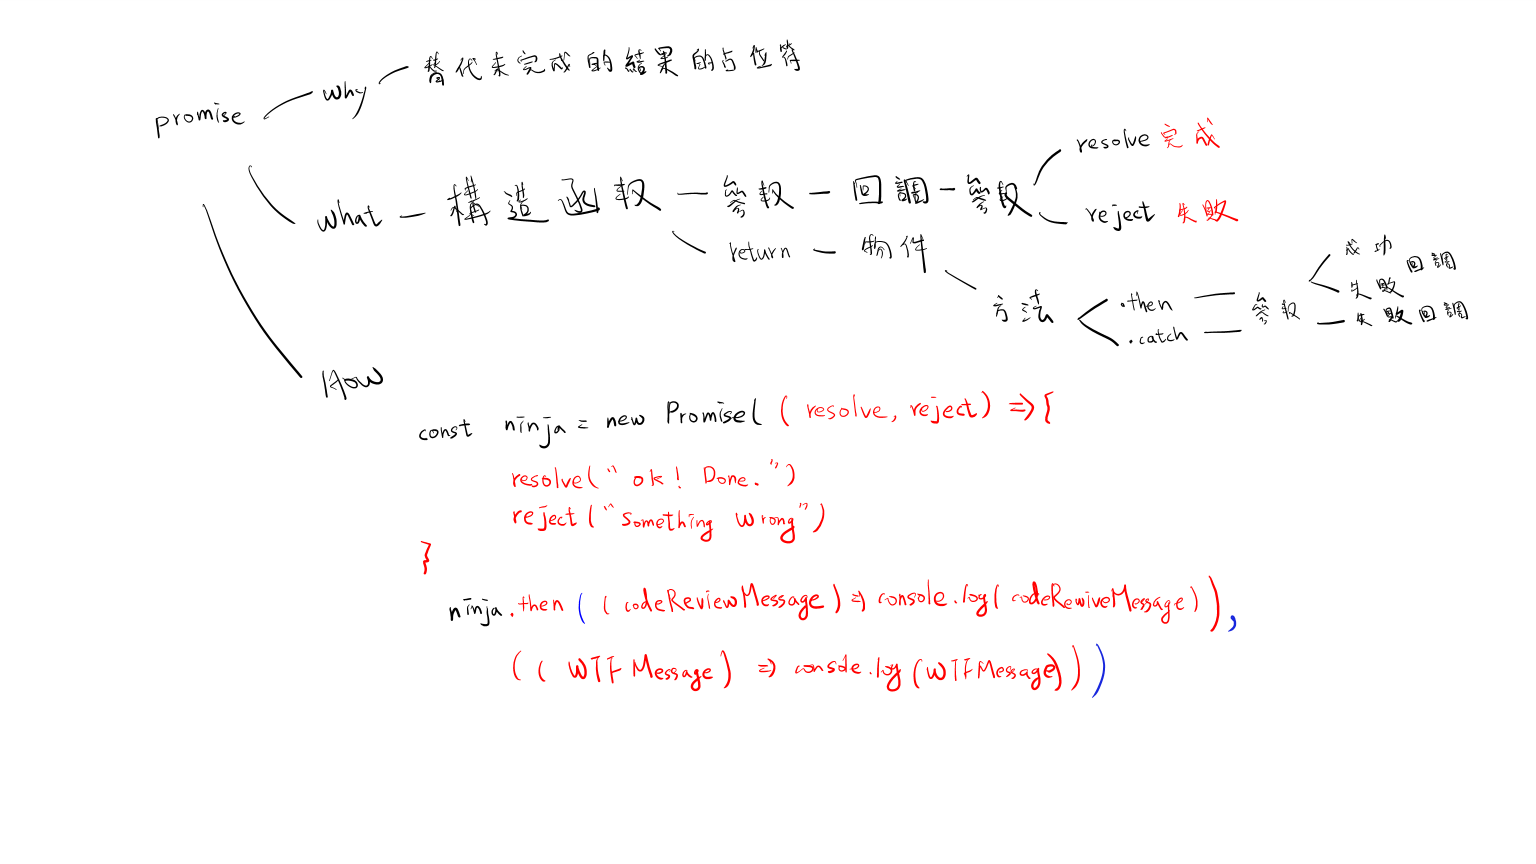 promise
why
替代未完成的結果的占位符
what 構造函数 参数 回調 参数
resolve 完成
reject 失敗
return 物件
方法
.then
.catch
参数
成功
失敗
回調
失敗回調
How
const ninja = new Promise( ( resolve, reject) => {
resolve("ok! Done.")
reject("Something Wrong")
}
ninja.then ( ( codeReviewMessage ) => console.log( codeRewiveMessage ) ) ,
( ( WTFMessage ) => console.log (WTFMessage) ) )